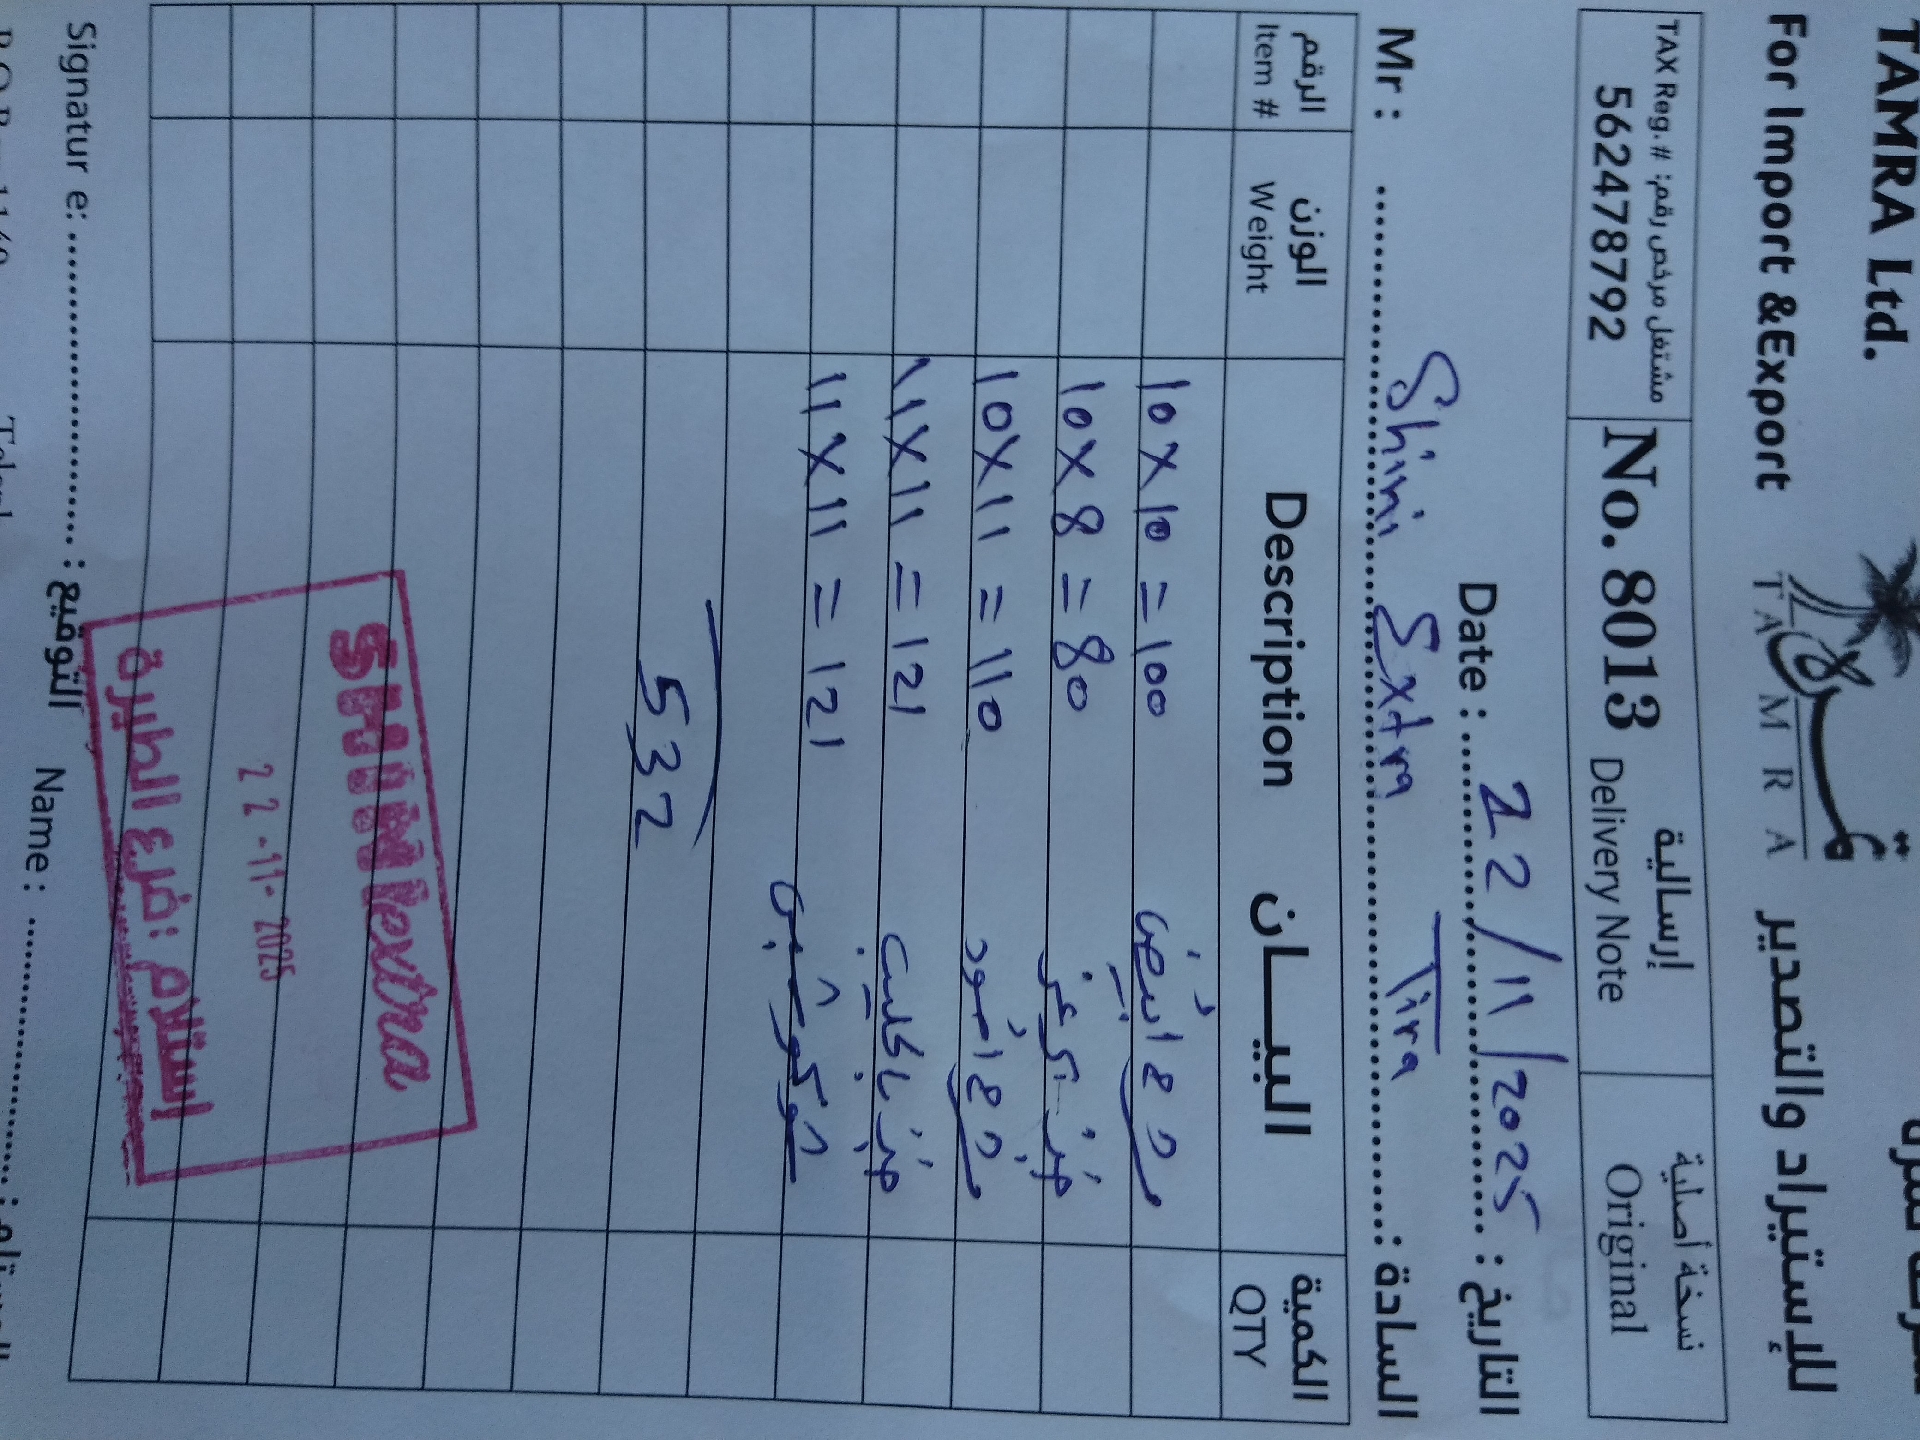 TAMRA Ltd.
For Import &Export
تمرة
TAMRA
للإستيراد والتصدير
TAX Reg. # :مشتغل مرخص رقم
562478792
No. 8013
إرسالية
Delivery Note
نسخة أصلية
Original
Date : 22/11/2025 : التاريخ
Mr : Shini Extra Tira : السادة
الرقم
Item #
الوزن
Weight
Description البيـــان
الكمية
QTY
10 x 10 = 100
10 x 8 = 80
10 x 11 = 110
11 x 11 = 121
11 x 11 = 121
532
SHINI extra
22-11-2025
استلام :فرع الطيرة
Signatur e: : التوقيع
Name :